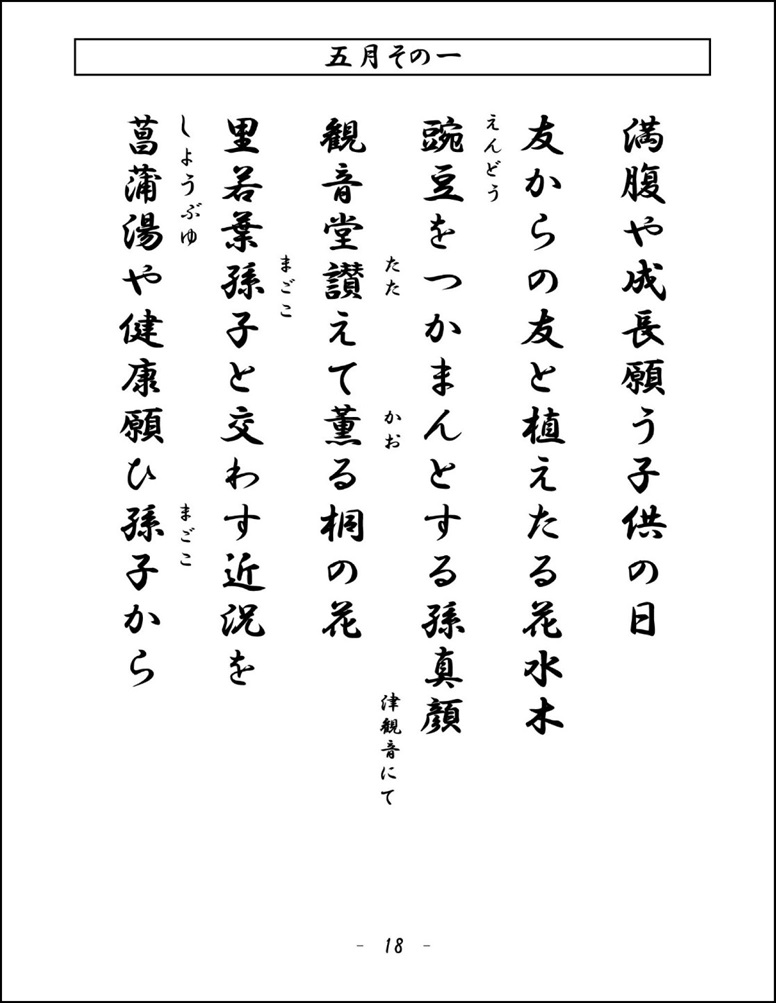 五月その一
満腹や成長願う子供の日
友からの友と植えたる花水木
えんどう
豌豆をつかまんとする孫真顔
たた
かお
津観音にて
観音堂讃えて薫る桐の花
まごこ
里若葉孫子と交わす近況を
しょうぶゆ
まごこ
菖蒲湯や健康願ひ孫子から
- 18 -